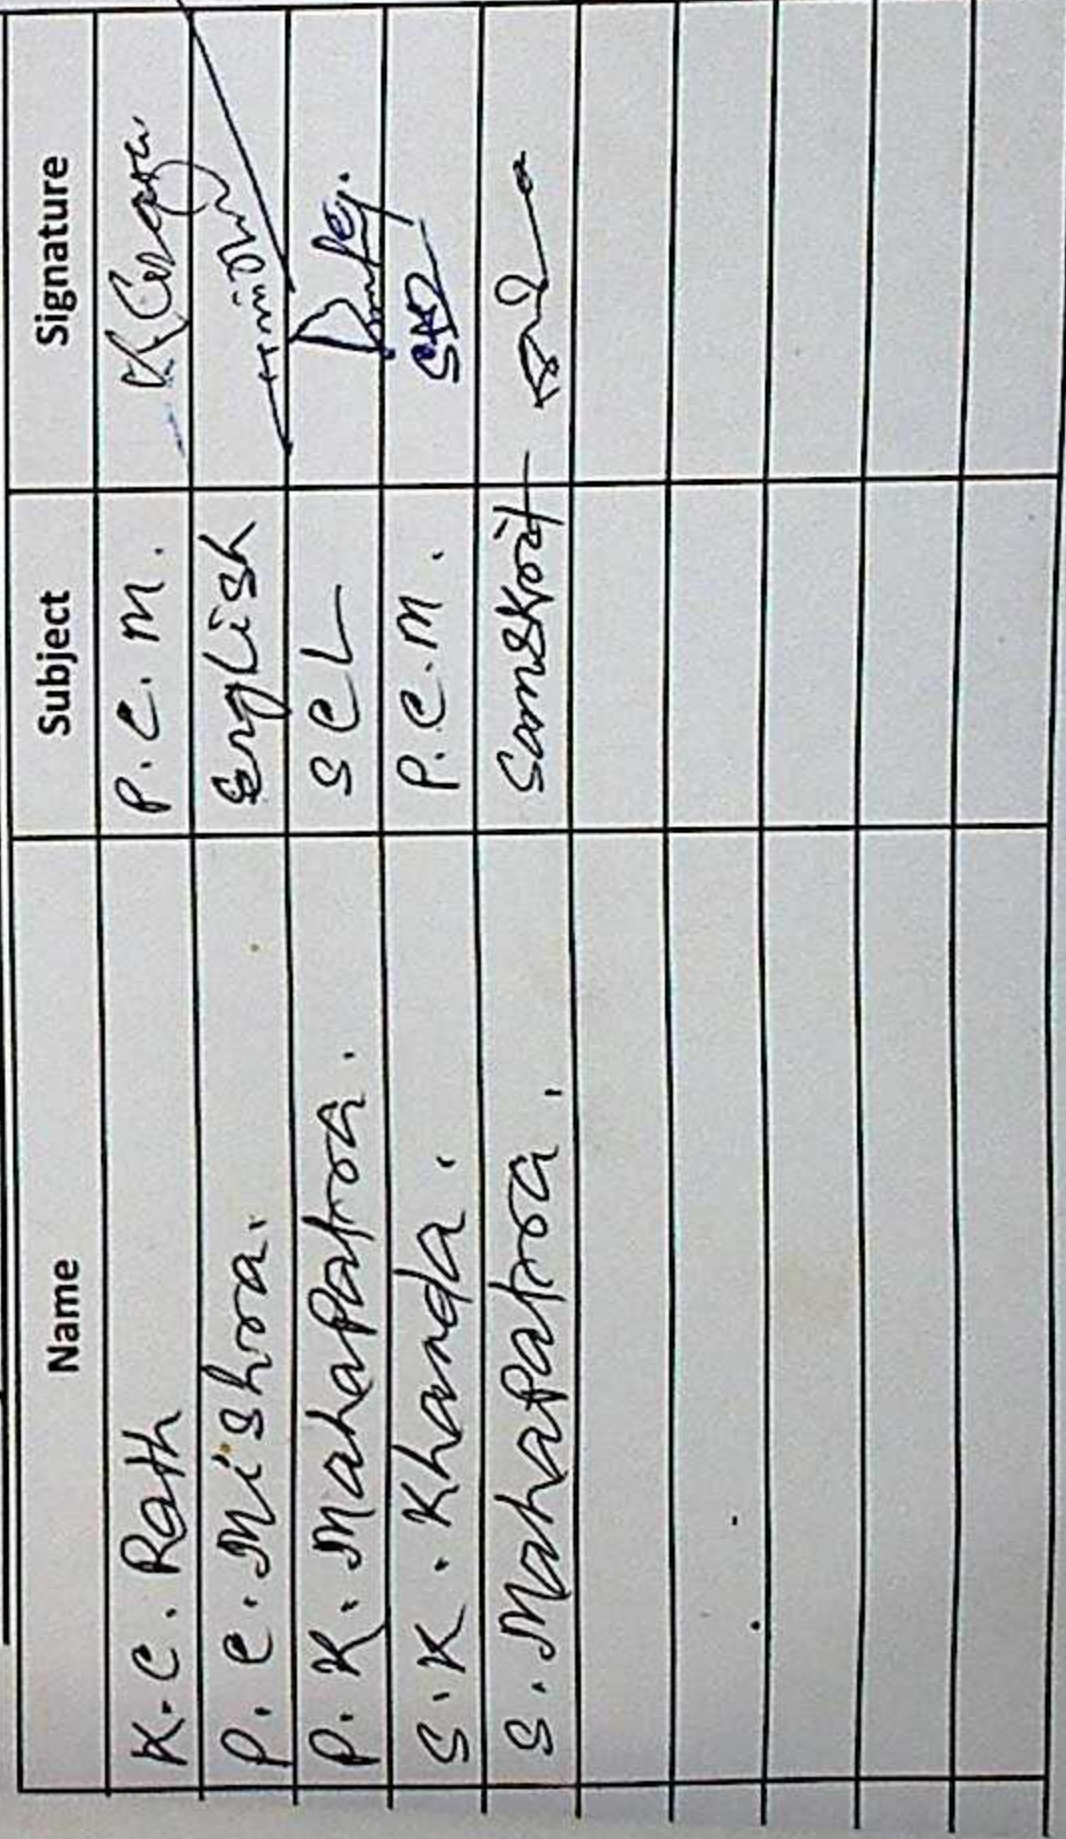 Name Subject Signature
K.C. Rath P.C.M.
P.C. Mishra. English
P.K. Mahapatra. SCL
S.K. Khanda. P.C.M. SKD
S. Mahapatra. Samskrit